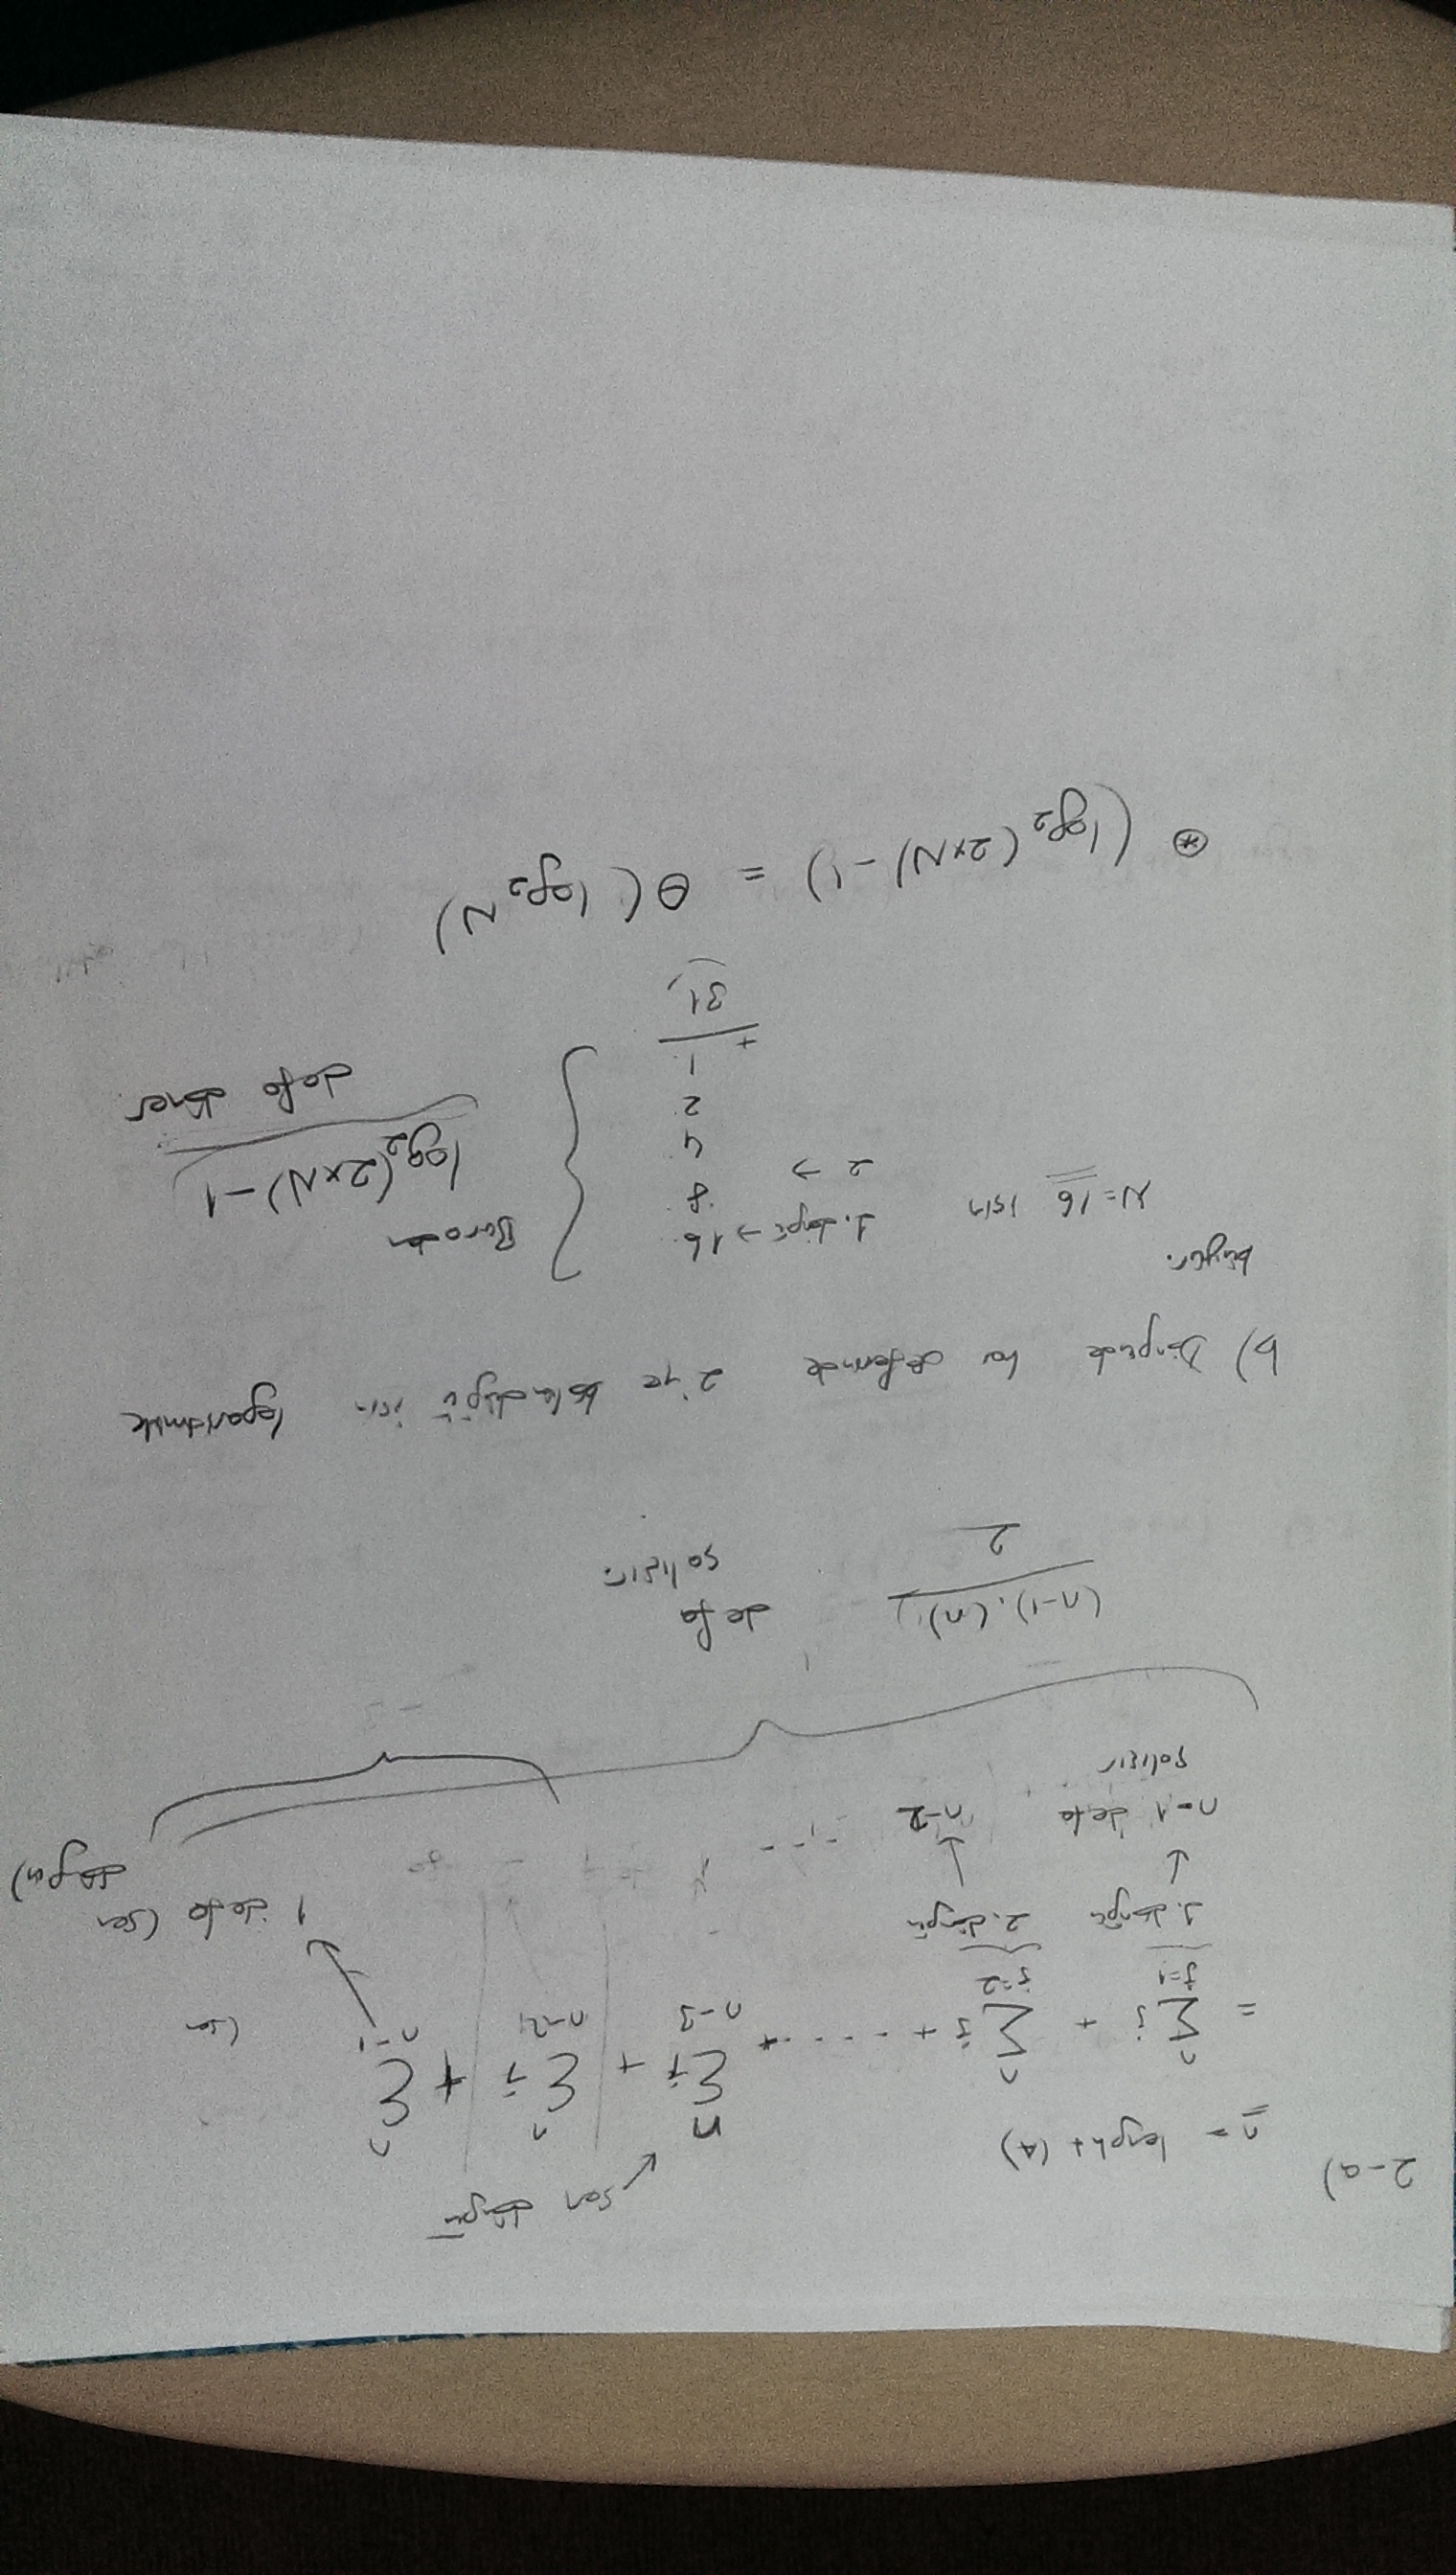 2-a)
n = lenght (A)
son döngü
= n Σ j=1 j + n Σ j=2 j + - - - - - + n Σ n-3 j + n Σ n-2 j + n Σ n-1
(son
1. döngü 2. döngü
1 defa (son
döngü)
n-1 defa n-2 - . - -
çalışır
(n-1).(n) / 2 defa
çalışır.
b) Döngüde her seferinde 2'ye bölündüğü için logaritmik
büyür.
N=16 için
1. döngü → 16
2 → 8
4
2
+ 1
31
Buradan
log₂(2xN)-1
defa döner
⊛ (log₂(2xN)-1) = θ(log₂N)